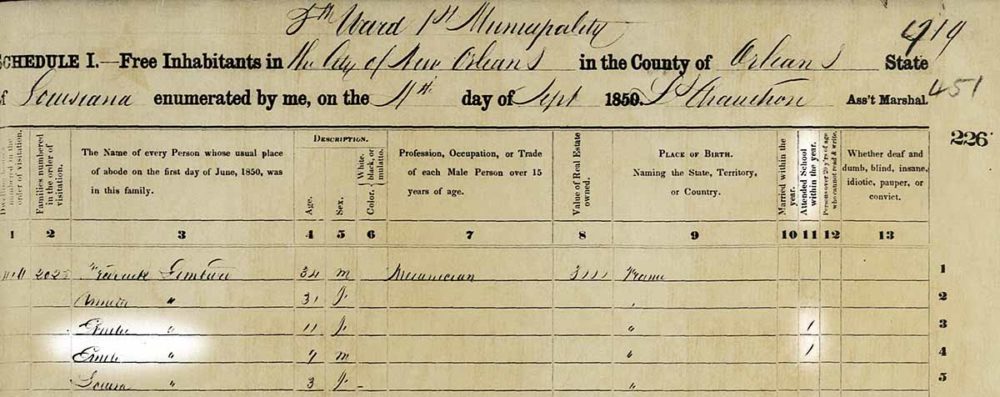 5th Ward 1st Municipality
919
SCHEDULE I.—Free Inhabitants in The City of New Orleans in the County of Orleans State
of Louisiana enumerated by me, on the 4th day of Sept 1850. Ass't Marshal.
451
226
Dwelling-houses numbered in the order of visitation.
Families numbered in the order of visitation.
The Name of every Person whose usual place of abode on the first day of June, 1850, was in this family.
DESCRIPTION.
Age.
Sex.
Color, White, black, or mulatto.
Profession, Occupation, or Trade of each Male Person over 15 years of age.
Value of Real Estate owned.
PLACE OF BIRTH.
Naming the State, Territory, or Country.
Married within the year.
Attended School within the year.
Persons over 20 y'rs of age who cannot read & write.
Whether deaf and dumb, blind, insane, idiotic, pauper, or convict.
1 2 3 4 5 6 7 8 9 10 11 12 13
2025 34 m France 1
" 31 f 2
" 11 f " 1 3
Emile " 7 m " 1 4
Louisa " 3 f " 5